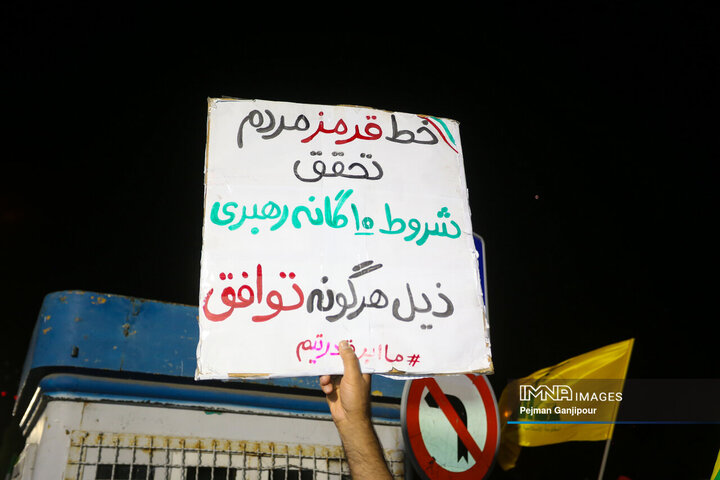 خط قرمز مردم
تحقق
شروط ۱۰ گانه رهبری
ذیل هرگونه توافق
#ما ابرقدرتیم
IMNA IMAGES
Pejman Ganjipour